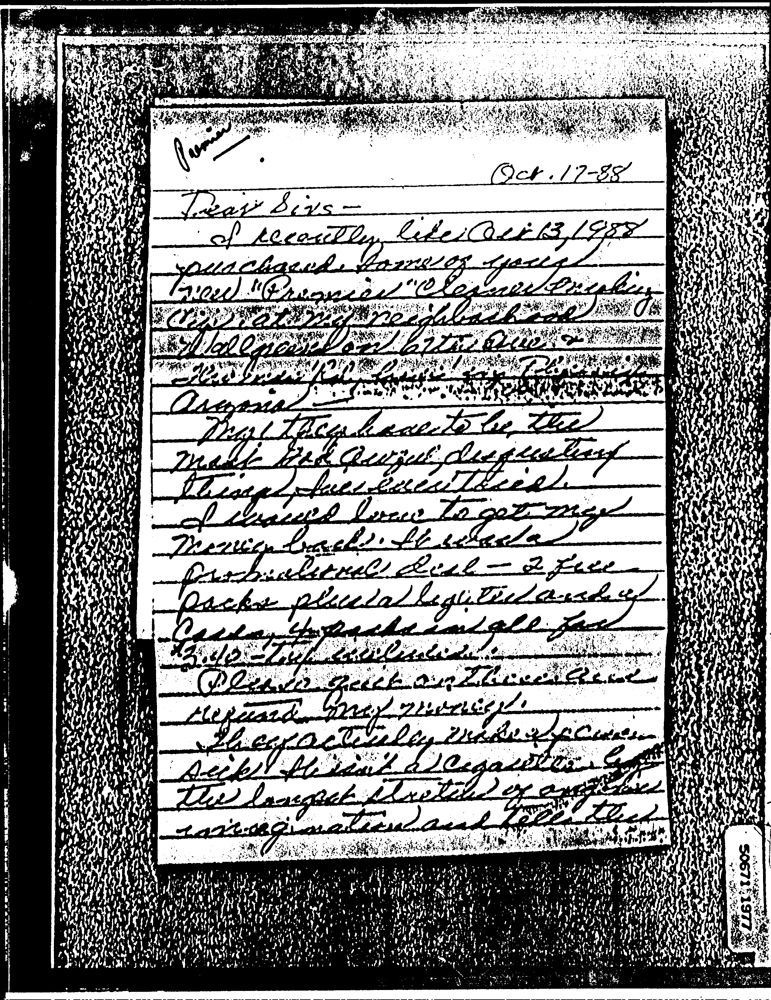 Premier
Oct. 17-88
Dear Sirs-
I recently, like Oct 13, 1988
purchased some of your
new "Premier" Cleaner Smoking
Cigs. at my neighborhood
Walgreens on Ave. &
Rd, here in Phoenix
Arizona
My! they have to be, the
most God Awful, disgusting
things, I've ever tried.
I would love to get my
money back. It was a
promotional deal - 2 free
packs plus a lighter and a
4 packs in all for
$3.40 - tax included.
Please quit on these and
refund my money!
They actually made me
sick! It isn't a cigarette by
the longest stretch of anyone's
imagination and tell the
506711977